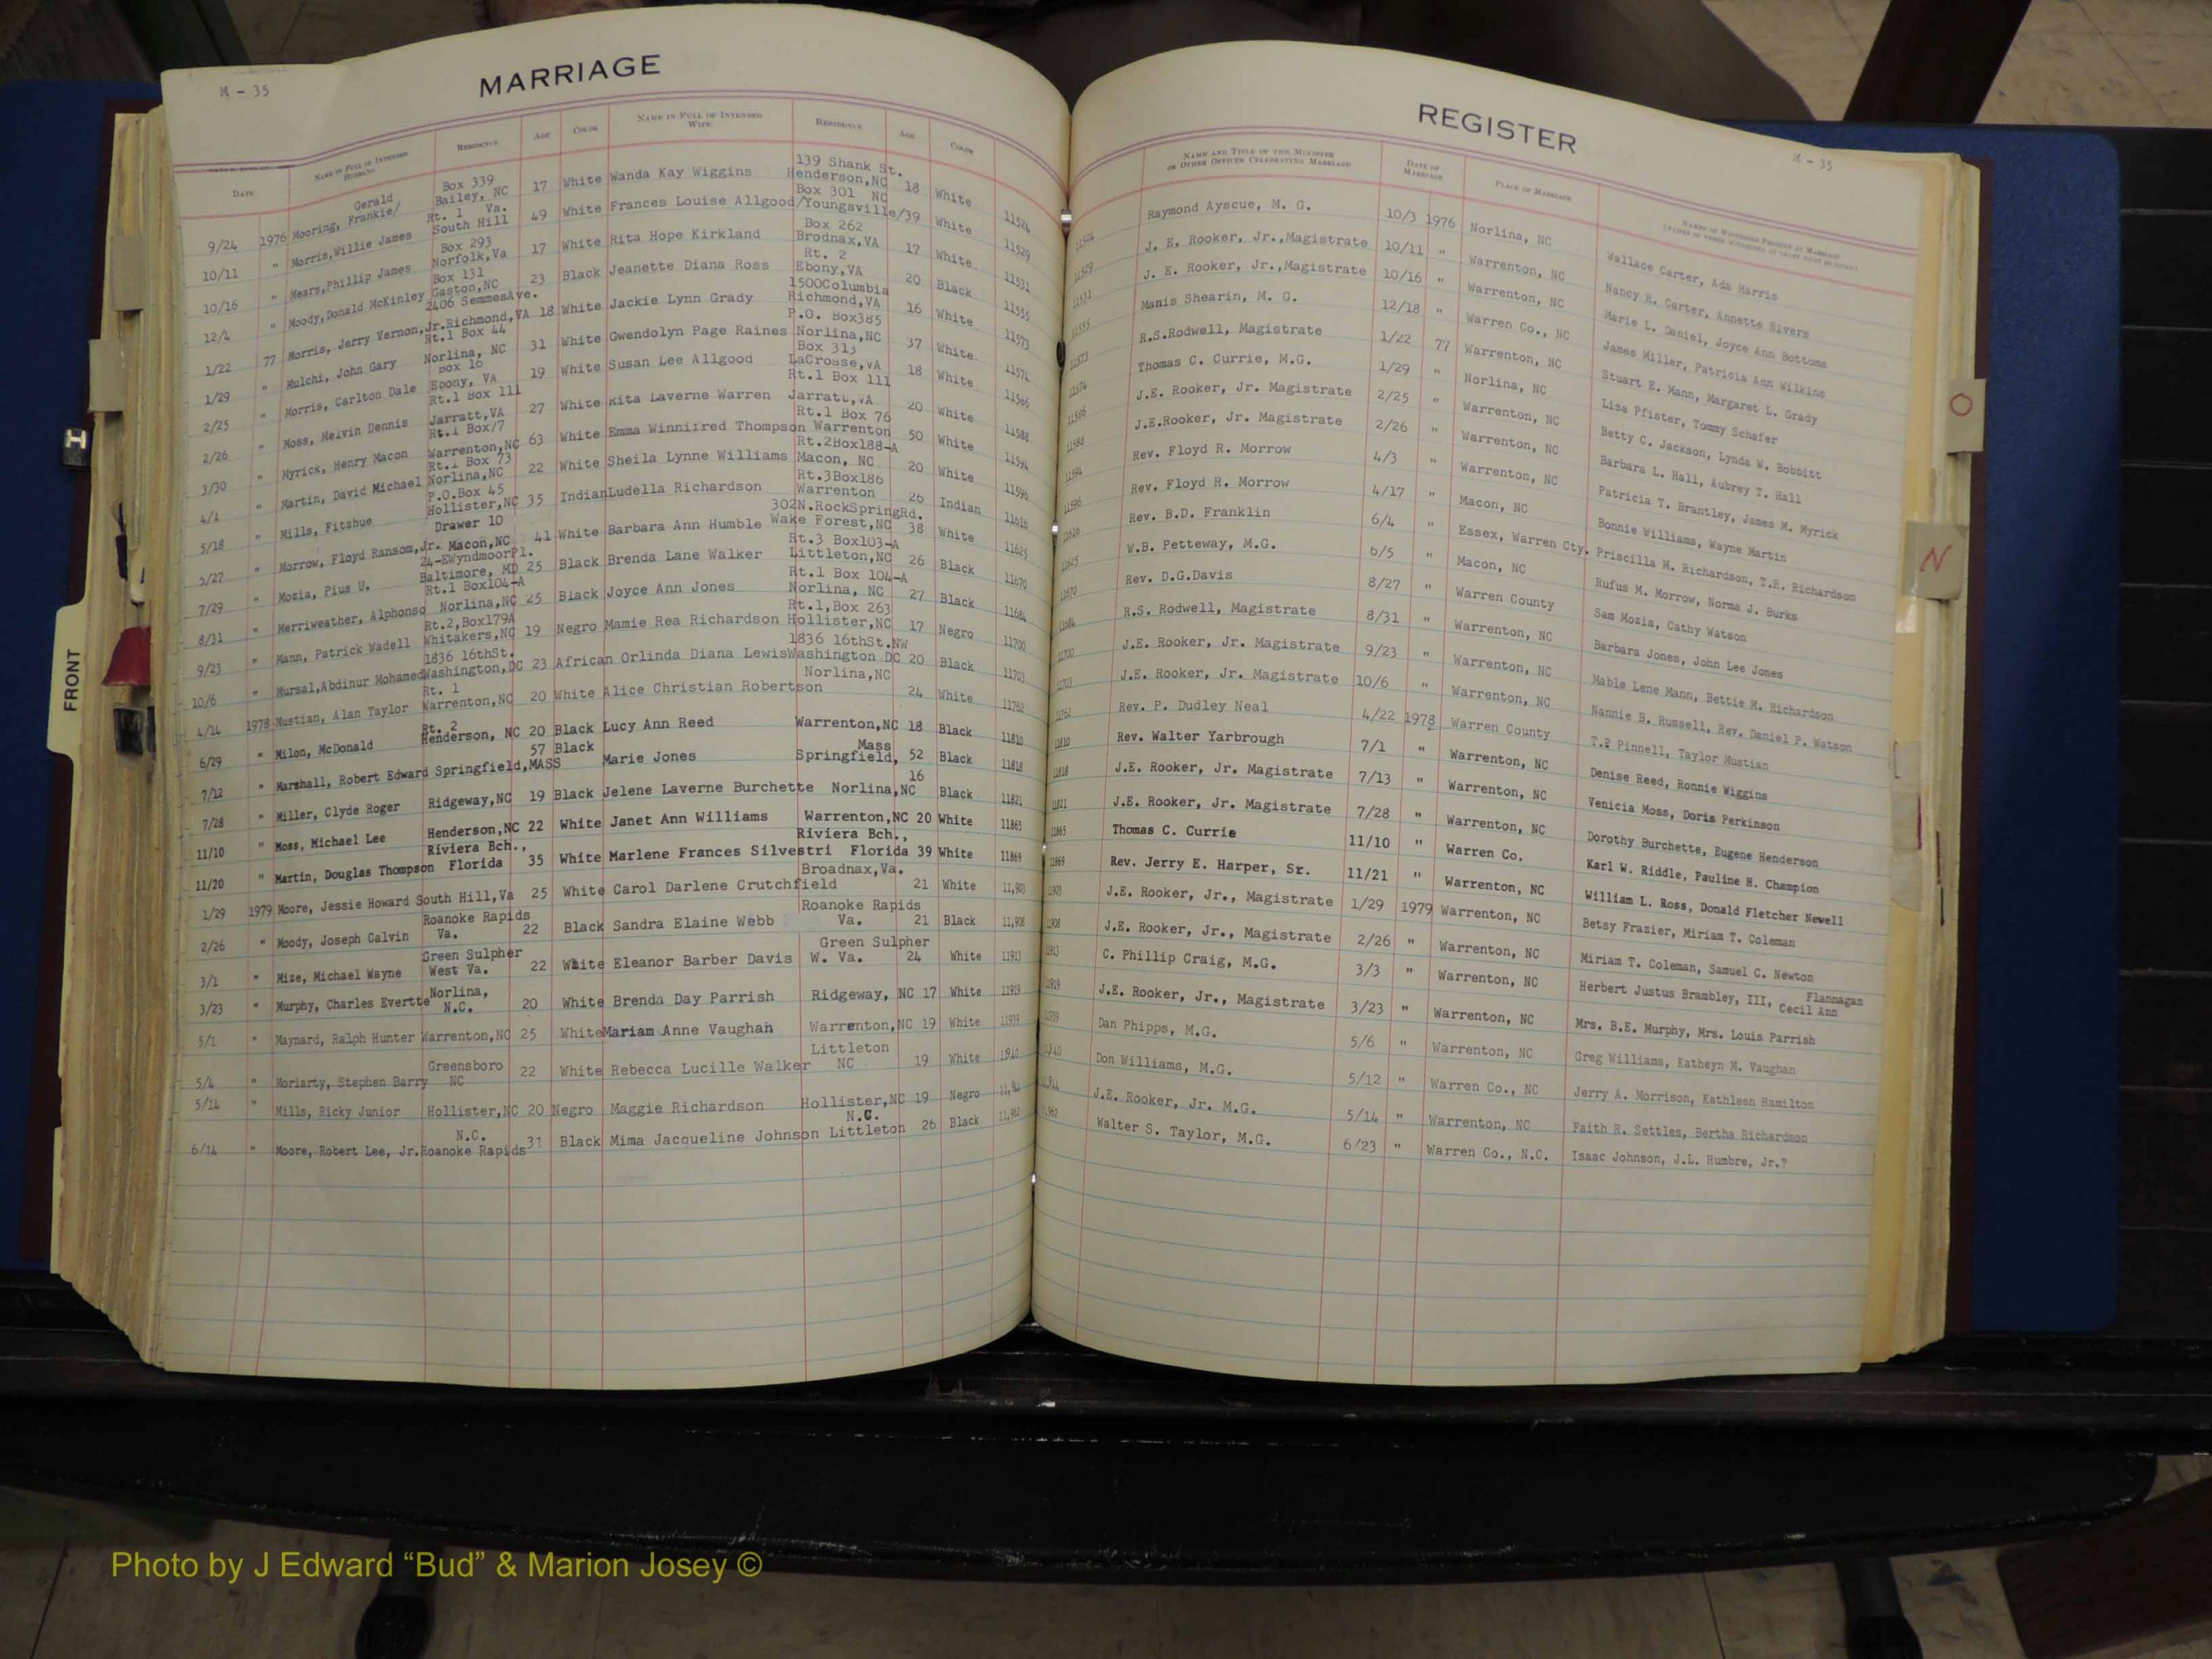 M - 35
MARRIAGE
DATE NAME IN FULL OF INTENDED HUSBAND RESIDENCE AGE COLOR NAME IN FULL OF INTENDED WIFE RESIDENCE AGE COLOR
9/24 1976 Mooring, Gerald Frankie/ Box 339 Bailey, NC 17 White Wanda Kay Wiggins 139 Shank St. Henderson,NC 18 White 11524
10/11 " Morris,Willie James Rt. 1 Va. South Hill 49 White Frances Louise Allgood/Youngsville/39 Box 301 NC White 11529
10/16 " Mears,Phillip James Box 293 Norfolk,Va 17 White Rita Hope Kirkland Box 262 Brodnax,VA 17 White 11531
12/4 " Moody,Donald McKinley Box 131 Gaston,NC 23 Black Jeanette Diana Ross Rt. 2 Ebony,VA 20 Black 11555
1/22 77 Morris, Jerry Vernon,Jr. 2406 SemmesAve. Richmond,VA 18 White Jackie Lynn Grady 1500Columbia Richmond,VA 16 White 11573
1/29 " Mulchi, John Gary Rt.1 Box 44 Norlina, NC 31 White Gwendolyn Page Raines P.O. Box385 Norlina,NC 37 White 11574
2/25 " Morris, Carlton Dale Box 16 Ebony, VA 19 White Susan Lee Allgood Box 313 LaCrosse,VA 18 White 11586
2/26 " Moss, Melvin Dennis Rt.1 Box 111 Jarratt,VA 27 White Rita Laverne Warren Rt.1 Box 111 Jarratt,VA 20 White 11588
3/30 " Myrick, Henry Macon Rt.1 Box77 Warrenton,NC 63 White Emma Winnifred Thompson Rt.1 Box 76 Warrenton 50 White 11594
4/1 " Martin, David Michael Rt.1 Box 73 Norlina,NC 22 White Sheila Lynne Williams Rt.2Box188-A Macon, NC 20 White 11596
5/18 " Mills, Fitzhue P.O.Box 45 Hollister,NC 35 Indian Ludella Richardson Rt.3Box186 Warrenton 26 Indian 11616
5/27 " Morrow, Floyd Ransom,Jr. Drawer 10 Macon,NC 41 White Barbara Ann Humble 302N.RockSpringRd. Wake Forest,NC 38 White 11625
7/29 " Mozia, Pius U. 24-EWyndmoorPl. Baltimore, MD 25 Black Brenda Lane Walker Rt.3 Box103-A Littleton,NC 26 Black 11670
8/31 " Merriweather, Alphonso Rt.1 Box104-A Norlina,NC 25 Black Joyce Ann Jones Rt.1 Box 104-A Norlina, NC 27 Black 11684
9/23 " Mann, Patrick Wadell Rt.2,Box179A Whitakers,NC 19 Negro Mamie Rea Richardson Rt.1,Box 263 Hollister,NC 17 Negro 11700
10/6 " Mursal,Abdinur Mohamed 1836 16thSt. Washington,DC 23 African Orlinda Diana Lewis 1836 16thSt.NW Washington DC 20 Black 11703
4/14 1978 Mustian, Alan Taylor Rt. 1 Warrenton,NC 20 White Alice Christian Robertson Norlina,NC 24 White 11762
6/29 " Milon, McDonald Rt. 2 Henderson, NC 20 Black Lucy Ann Reed Warrenton,NC 18 Black 11810
7/12 " Marshall, Robert Edward Springfield,MASS 57 Black Marie Jones Springfield, Mass 52 Black 11818
7/28 " Miller, Clyde Roger Ridgeway,NC 19 Black Jelene Laverne Burchette Norlina,NC 16 Black 11821
11/10 " Moss, Michael Lee Henderson,NC 22 White Janet Ann Williams Warrenton,NC 20 White 11865
11/20 " Martin, Douglas Thompson Riviera Bch., Florida 35 White Marlene Frances Silvestri Riviera Bch., Florida 39 White 11869
1/29 1979 Moore, Jessie Howard South Hill,Va 25 White Carol Darlene Crutchfield Broadnax,Va. 21 White 11,903
2/26 " Moody, Joseph Calvin Roanoke Rapids Va. 22 Black Sandra Elaine Webb Roanoke Rapids Va. 21 Black 11,908
3/1 " Mize, Michael Wayne Green Sulpher West Va. 22 White Eleanor Barber Davis Green Sulpher W. Va. 24 White 11913
3/23 " Murphy, Charles Evertte Norlina, N.C. 20 White Brenda Day Parrish Ridgeway, NC 17 White 11919
5/1 " Maynard, Ralph Hunter Warrenton,NC 25 White Mariam Anne Vaughan Warrenton,NC 19 White 11939
5/4 " Moriarty, Stephen Barry Greensboro NC 22 White Rebecca Lucille Walker Littleton NC 19 White 11940
5/14 " Mills, Ricky Junior Hollister,NC 20 Negro Maggie Richardson Hollister,NC 19 Negro
6/14 " Moore, Robert Lee, Jr. N.C. Roanoke Rapids 31 Black Mima Jacqueline Johnson N.C. Littleton 26 Black 11,962
REGISTER
M - 35
NAME AND TITLE OF THE MINISTER OR OTHER OFFICER CELEBRATING MARRIAGE DATE OF MARRIAGE PLACE OF MARRIAGE NAMES OF WITNESSES PRESENT AT MARRIAGE
11524 Raymond Ayscue, M. G. 10/3 1976 Norlina, NC Wallace Carter, Ada Harris
11529 J. E. Rooker, Jr.,Magistrate 10/11 " Warrenton, NC Nancy R. Carter, Annette Rivers
11531 J. E. Rooker, Jr.,Magistrate 10/16 " Warrenton, NC Marie L. Daniel, Joyce Ann Bottoms
11555 Manis Shearin, M. G. 12/18 " Warren Co., NC James Miller, Patricia Ann Wilkins
11573 R.S.Rodwell, Magistrate 1/22 77 Warrenton, NC Stuart E. Mann, Margaret L. Grady
11574 Thomas C. Currie, M.G. 1/29 " Norlina, NC Lisa Pfister, Tommy Schafer
11586 J.E. Rooker, Jr. Magistrate 2/25 " Warrenton, NC Betty C. Jackson, Lynda W. Bobbitt
11588 J.E.Rooker, Jr. Magistrate 2/26 " Warrenton, NC Barbara L. Hall, Aubrey T. Hall
11594 Rev. Floyd R. Morrow 4/3 " Warrenton, NC Patricia T. Brantley, James M. Myrick
11596 Rev. Floyd R. Morrow 4/17 " Macon, NC Bonnie Williams, Wayne Martin
11616 Rev. B.D. Franklin 6/4 " Essex, Warren Cty. Priscilla M. Richardson, T.R. Richardson
11625 W.B. Petteway, M.G. 6/5 " Macon, NC Rufus M. Morrow, Norma J. Burks
11670 Rev. D.G.Davis 8/27 " Warren County Sam Mozia, Cathy Watson
11684 R.S. Rodwell, Magistrate 8/31 " Warrenton, NC Barbara Jones, John Lee Jones
11700 J.E. Rooker, Jr. Magistrate 9/23 " Warrenton, NC Mable Lene Mann, Bettie M. Richardson
11703 J.E. Rooker, Jr. Magistrate 10/6 " Warrenton, NC Nannie B. Russell, Rev. Daniel P. Watson
11762 Rev. P. Dudley Neal 4/22 1978 Warren County T.P Pinnell, Taylor Mustian
11810 Rev. Walter Yarbrough 7/1 " Warrenton, NC Denise Reed, Ronnie Wiggins
11818 J.E. Rooker, Jr. Magistrate 7/13 " Warrenton, NC Venicia Moss, Doris Perkinson
11821 J.E. Rooker, Jr. Magistrate 7/28 " Warrenton, NC Dorothy Burchette, Eugene Henderson
11865 Thomas C. Currie 11/10 " Warren Co. Karl W. Riddle, Pauline H. Champion
11869 Rev. Jerry E. Harper, Sr. 11/21 " Warrenton, NC William L. Ross, Donald Fletcher Newell
11903 J.E. Rooker, Jr., Magistrate 1/29 1979 Warrenton, NC Betsy Frazier, Miriam T. Coleman
11908 J.E. Rooker, Jr., Magistrate 2/26 " Warrenton, NC Miriam T. Coleman, Samuel C. Newton
11913 C. Phillip Craig, M.G. 3/3 " Warrenton, NC Herbert Justus Brambley, III, Flannagan Cecil Ann
11919 J.E. Rooker, Jr., Magistrate 3/23 " Warrenton, NC Mrs. B.E. Murphy, Mrs. Louis Parrish
11939 Dan Phipps, M.G. 5/6 " Warrenton, NC Greg Williams, Katheyn M. Vaughan
11940 Don Williams, M.G. 5/12 " Warren Co., NC Jerry A. Morrison, Kathleen Hamilton
J.E. Rooker, Jr. M.G. 5/14 " Warrenton, NC Faith R. Settles, Bertha Richardson
11,962 Walter S. Taylor, M.G. 6/23 " Warren Co., N.C. Isaac Johnson, J.L. Humbre, Jr.?
FRONT
H
O
N
Photo by J Edward “Bud” & Marion Josey ©